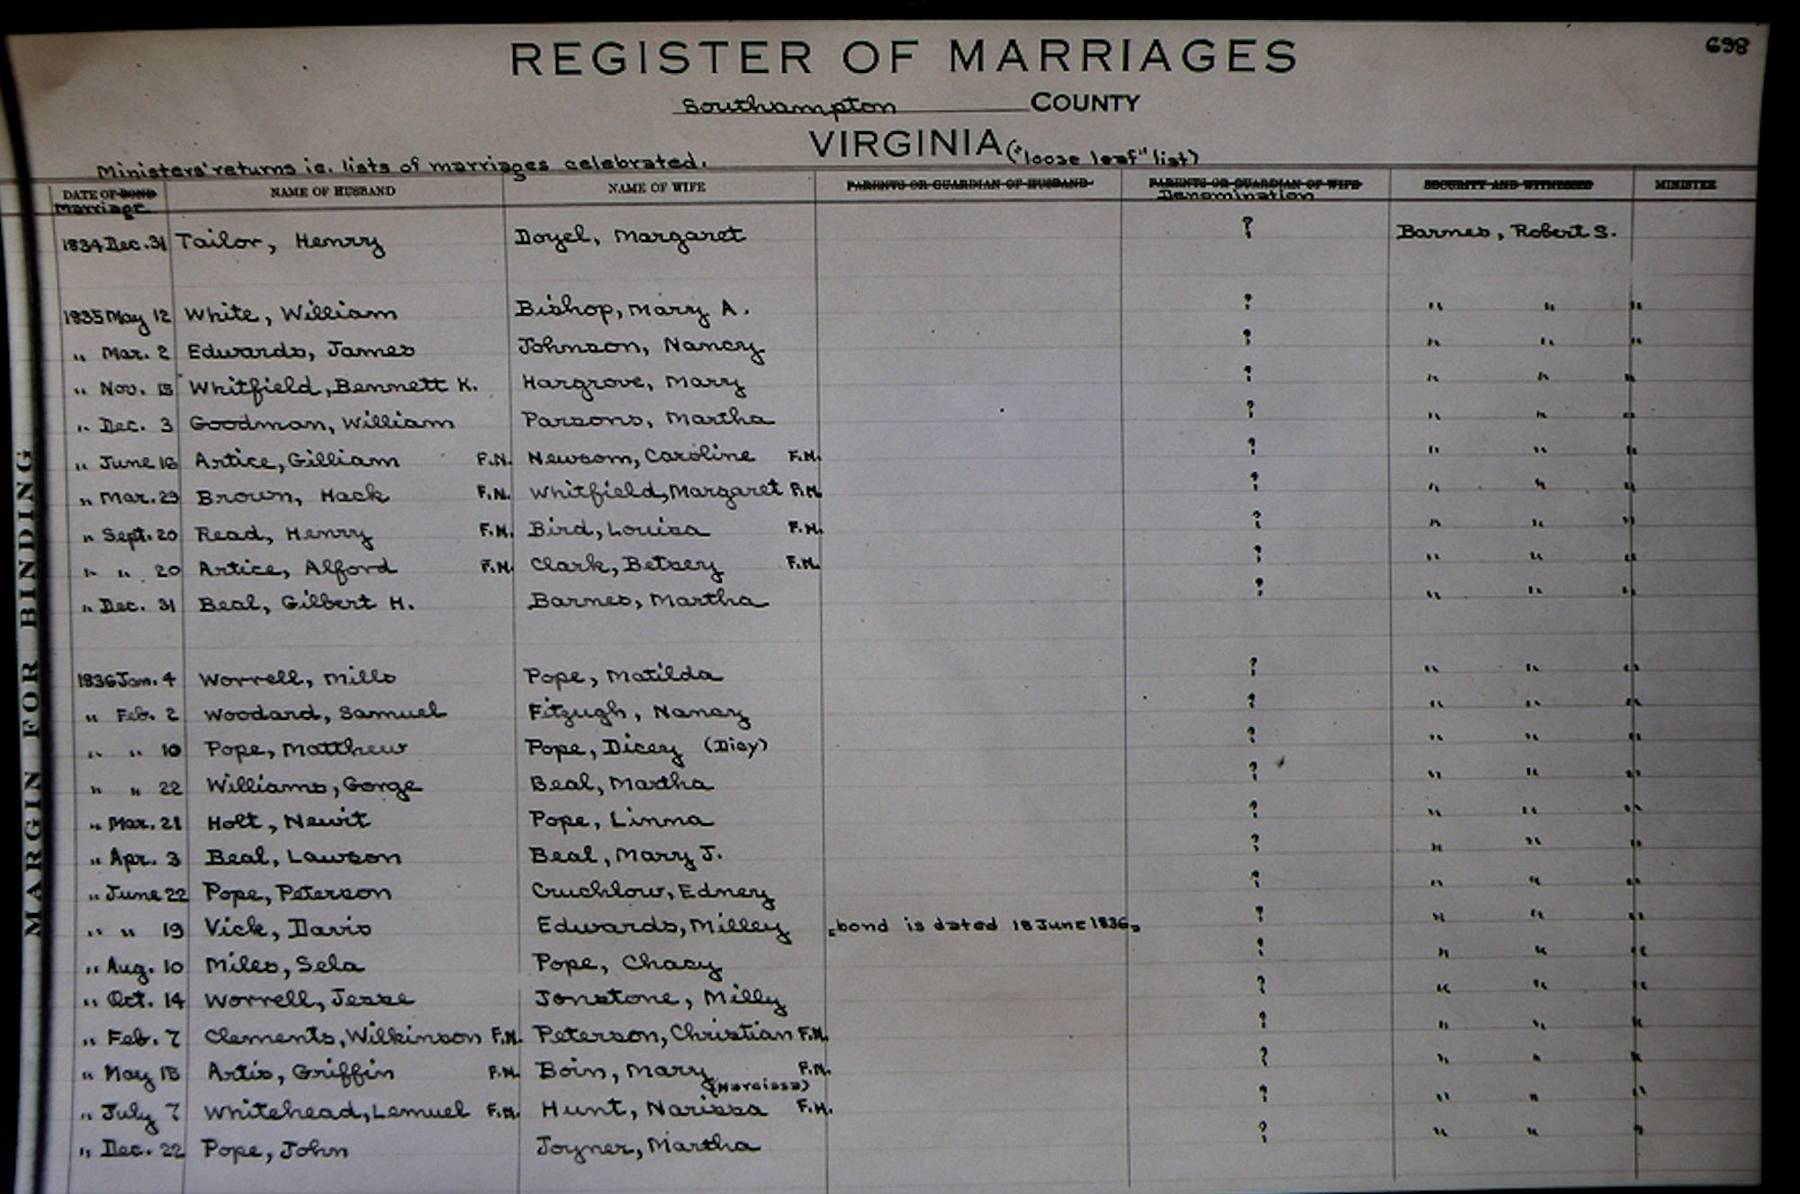 698
REGISTER OF MARRIAGES
Southampton COUNTY
VIRGINIA ("loose leaf" list)
Ministers' returns ie. lists of marriages celebrated.
DATE OF BOND NAME OF HUSBAND NAME OF WIFE PARENTS OR GUARDIAN OF HUSBAND PARENTS OR GUARDIAN OF WIFE SECURITY AND WITNESSES MINISTER
Marriage Denomination
1834 Dec. 31 Tailor, Henry Doyel, Margaret ? Barnes, Robert S.
1835 May 12 White, William Bishop, Mary A. ? " " "
" Mar. 2 Edwards, James Johnson, Nancy ? " " "
" Nov. 15 Whitfield, Bennett K. Hargrove, Mary ? " " "
" Dec. 3 Goodman, William Parsons, Martha ? " " "
" June 16 Artice, Gilliam F.N. Newsom, Caroline F.N. ? " " "
" Mar. 29 Brown, Hack F.N. Whitfield, Margaret F.N. ? " " "
" Sept. 20 Read, Henry F.N. Bird, Louisa F.N. ? " " "
" " 20 Artice, Alford F.N. Clark, Betsey F.N. ? " " "
" Dec. 31 Beal, Gilbert H. Barnes, Martha ? " " "
1836 Jan. 4 Worrell, Mills Pope, Matilda ? " " "
" Feb. 2 Woodard, Samuel Fitzugh, Nancy ? " " "
" " 10 Pope, Matthew Pope, Dicey (Dicy) ? " " "
" " 22 Williams, Gorge Beal, Martha ? " " "
" Mar. 21 Holt, Newit Pope, Linna ? " " "
" Apr. 3 Beal, Lawson Beal, Mary J. ? " " "
" June 22 Pope, Peterson Cruchlow, Edney ? " " "
" " 19 Vick, Davis Edwards, Milley bond is dated 18 June 1836 ? " " "
" Aug. 10 Miles, Sela Pope, Chacy ? " " "
" Oct. 14 Worrell, Jesse Jonstone, Milly ? " " "
" Feb. 7 Clements, Wilkinson F.N. Peterson, Christian F.N. ? " " "
" May 15 Artis, Griffin F.N. Boin, Mary F.N. ? " " "
(Narcissa)
" July 7 Whitehead, Lemuel F.N. Hunt, Narissa F.N. ? " " "
" Dec. 22 Pope, John Joyner, Martha ? " " "
MARGIN FOR BINDING